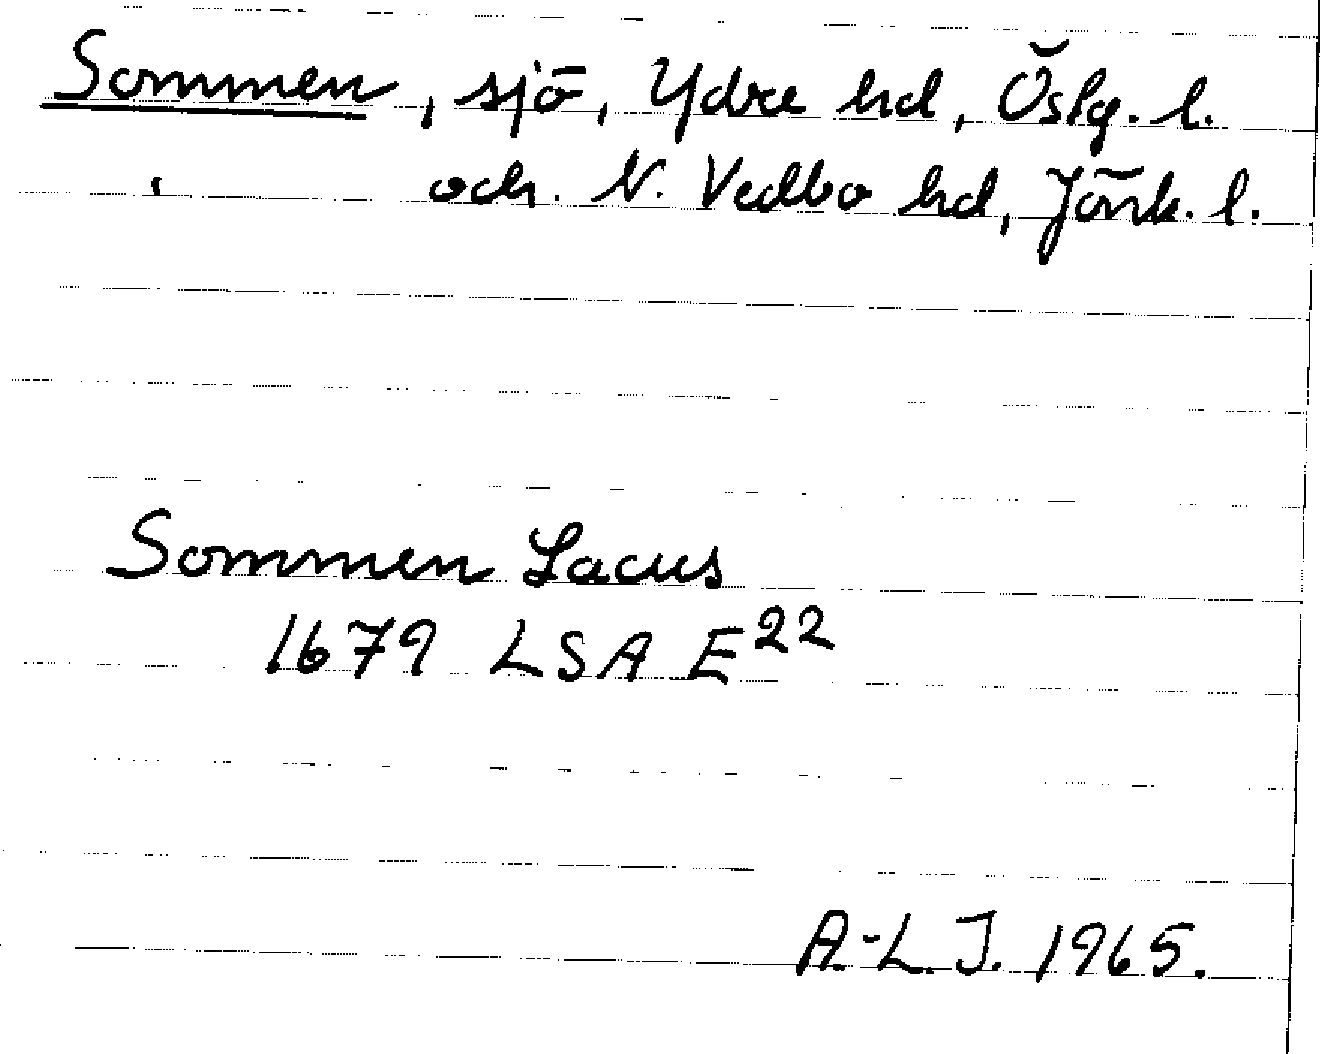 Sommen, sjö, Ydre hd, Östg. l.
och. N. Vedbo hd, Jönk. l.
Sommen Lacus
1679 LSA E22
A-L. J. 1965.